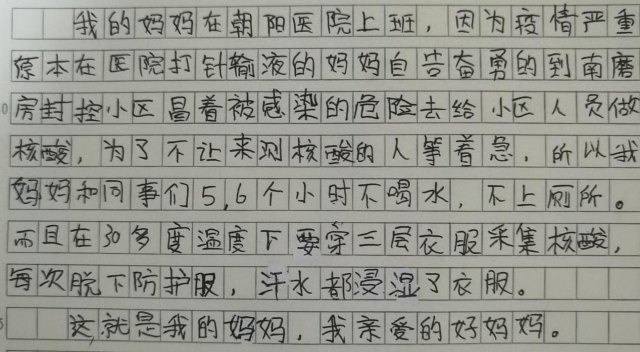 我的妈妈在朝阳医院上班，因为疫情严重
原本在医院打针输液的妈妈自告奋勇的到南磨
房封控小区冒着被感染的危险去给小区人员做
核酸，为了不让来测核酸的人等着急，所以我
妈妈和同事们5,6个小时不喝水，不上厕所。
而且在30多度温度下要穿三层衣服采集核酸，
每次脱下防护服，汗水都浸湿了衣服。
这就是我的妈妈，我亲爱的好妈妈。